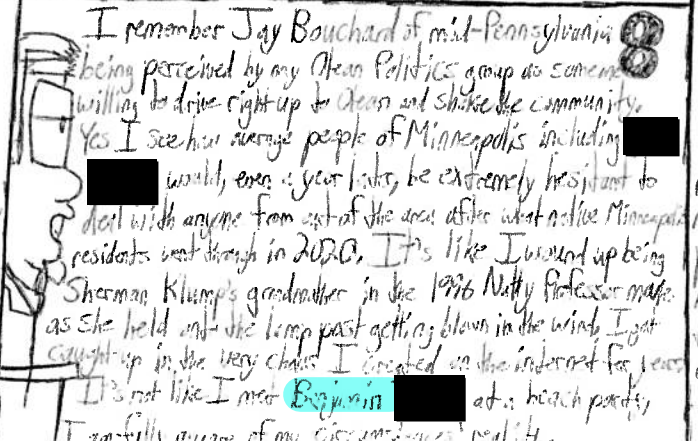 I remember Jay Bouchard of mid-Pennsylvania
being perceived by my Olean Politics group as someone
willing to drive right up to Olean and shake the community.
Yes I see how average people of Minneapolis including
would, even a year later, be extremely hesitant to
deal with anyone from out of the area after what native Minneapolis
residents went through in 2020. It's like I wound up being
Sherman Klump's grandmother in the 1996 Nutty Professor movie
as she held onto the lamp post getting blown in the wind, I got
caught up in the very chaos I created on the internet for years
It's not like I met Benjamin at a beach party,
I am fully aware of my circumstances' reality.